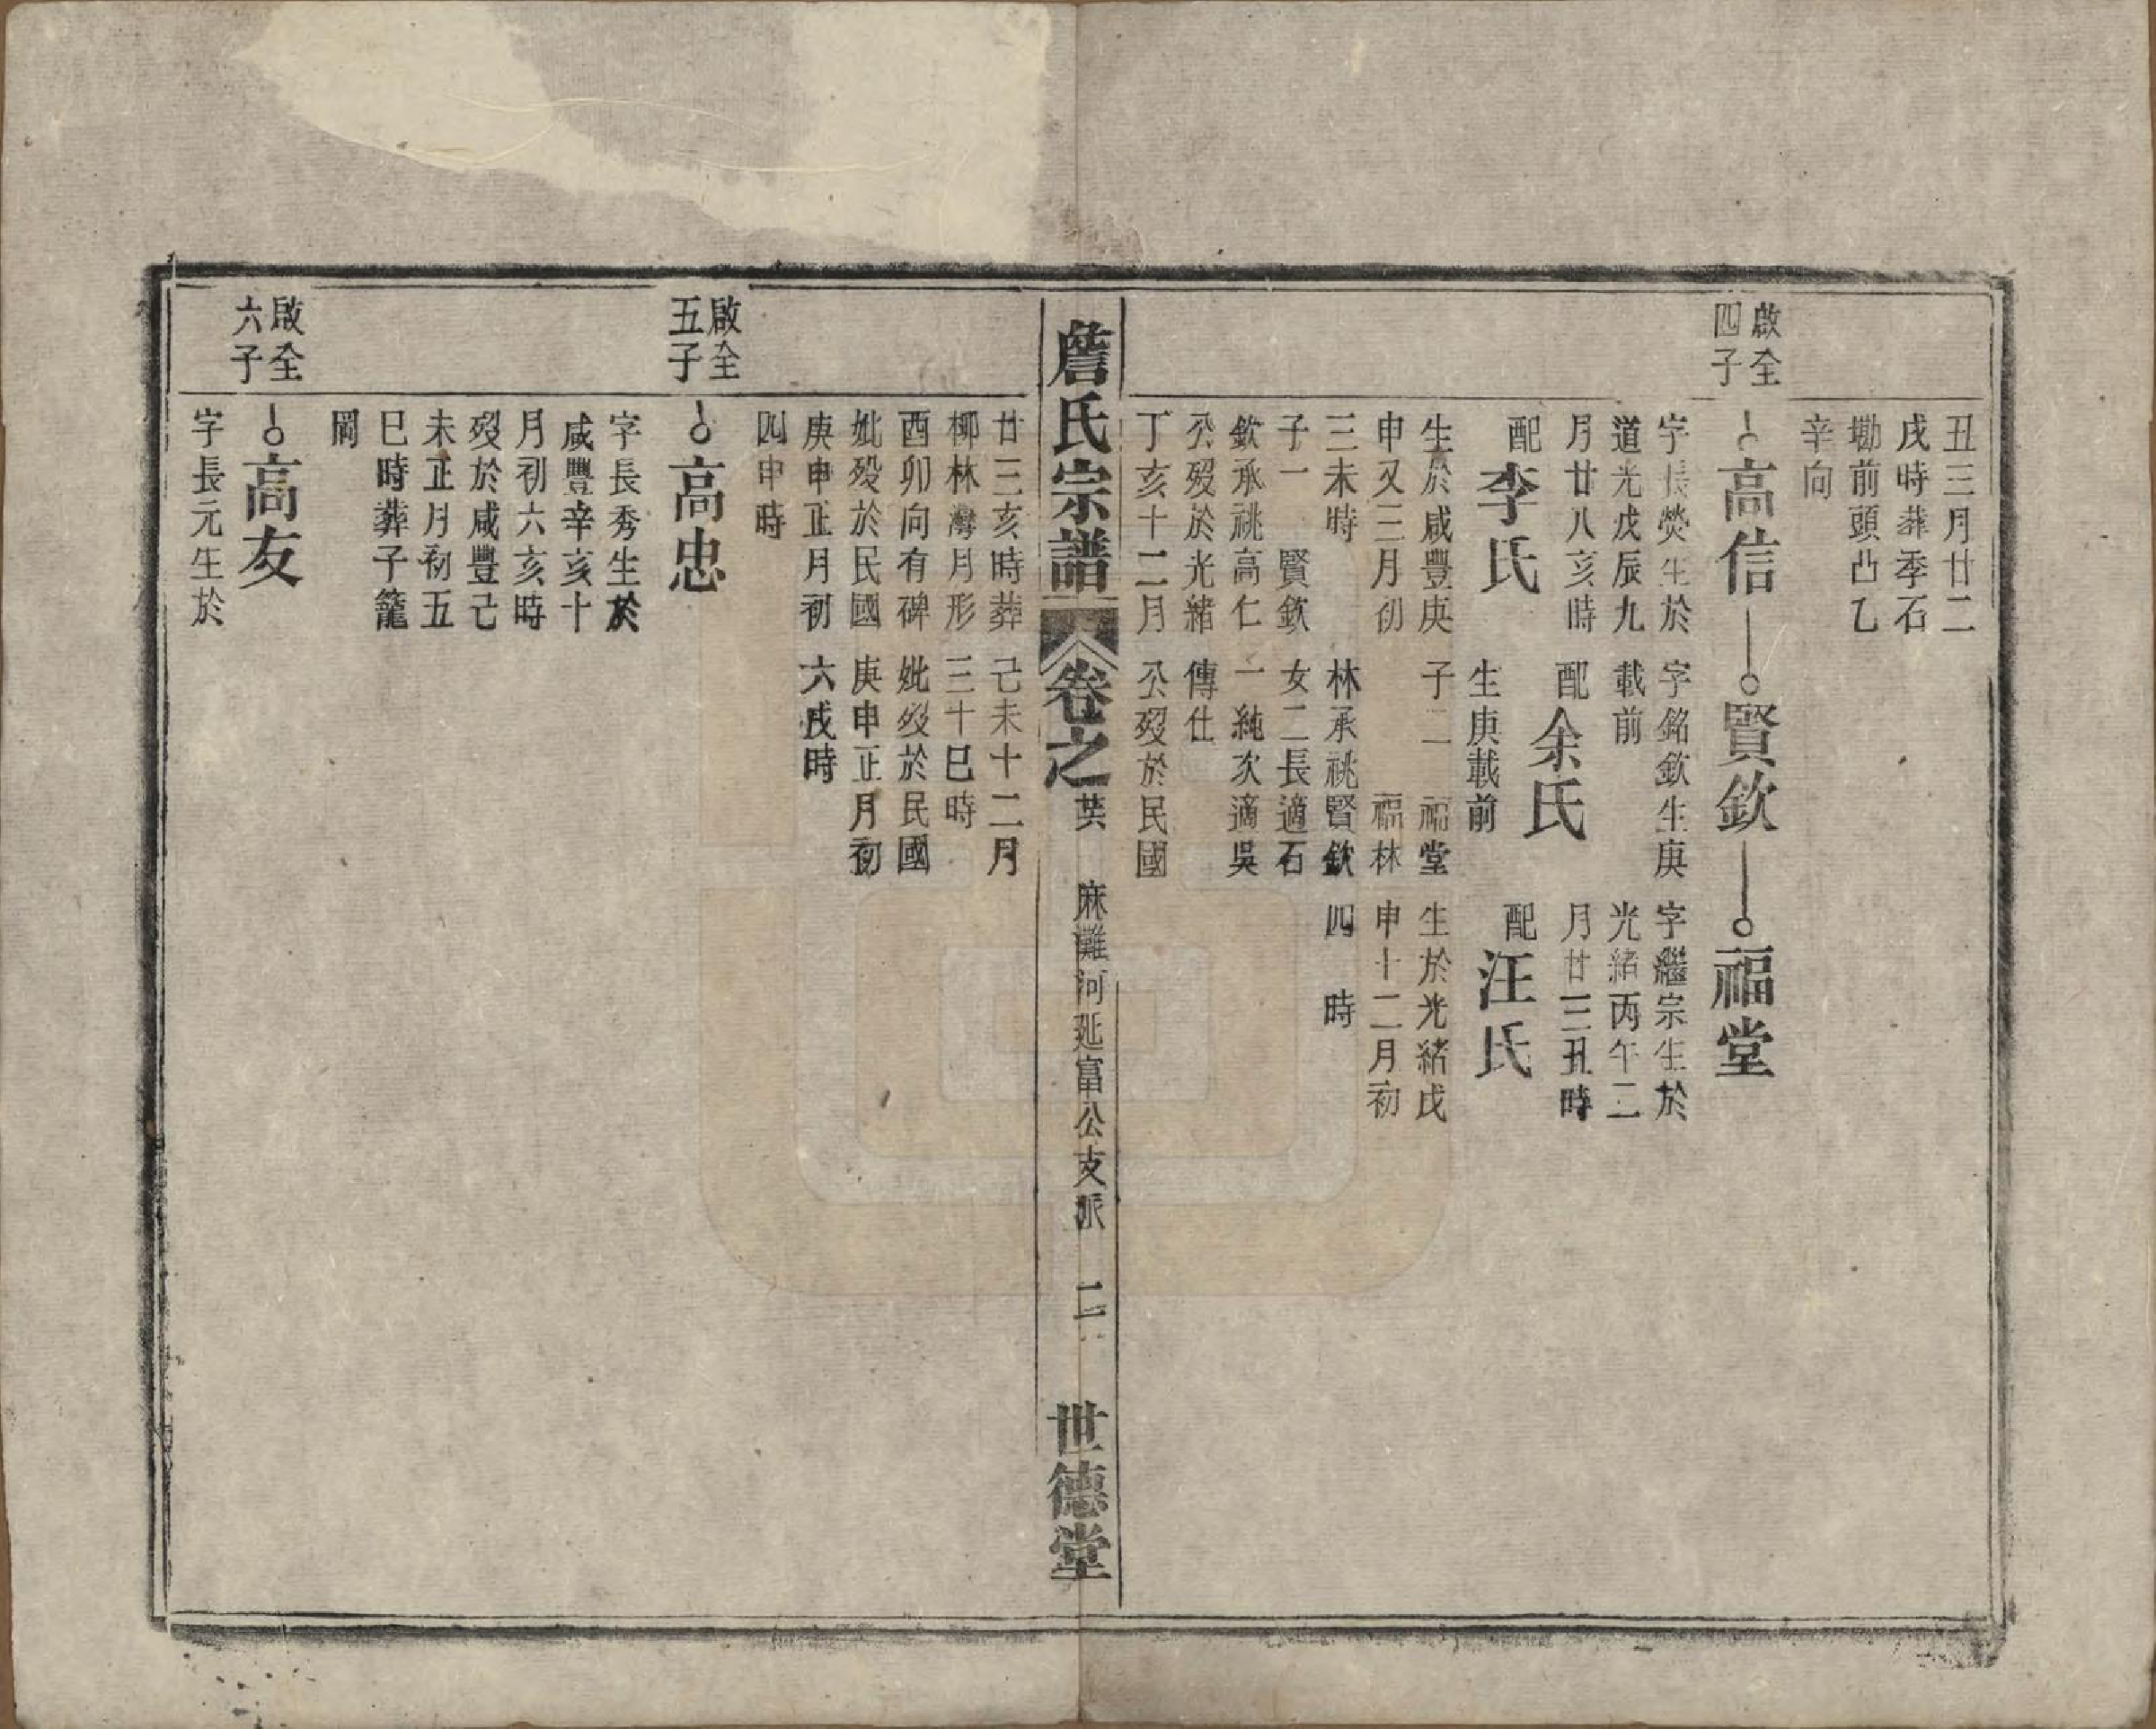 丑三月廿二
戌時葬季石
墈前頭凸乙
辛向
啟全
四子
高信
賢欽
福堂
字長熒生於
道光戊辰九
月廿八亥時
配李氏
生於咸豐庚
申又三月初
三未時
子一 賢欽
欽承祧高仁
公歿於光緒
丁亥十二月
廿三亥時葬
柳林灣月形
酉卯向有碑
妣歿於民國
庚申正月初
四申時
字銘欽生庚
載前
配余氏
生庚載前
子二 福堂
福林
林承祧賢欽
女二長適石
一純次適吳
傳仕
公歿於民國
己未十二月
三十巳時
妣歿於民國
庚申正月初
六戌時
字繼宗生於
光緒丙午二
月廿三丑時
配汪氏
生於光緒戊
申十二月初
四 時
詹氏宗譜 卷之 麻灘河延富公支派 二 世德堂
啟全
五子
高忠
字長秀生於
咸豐辛亥十
月初六亥時
歿於咸豐己
未正月初五
巳時葬子籠
岡
啟全
六子
高友
字長元生於